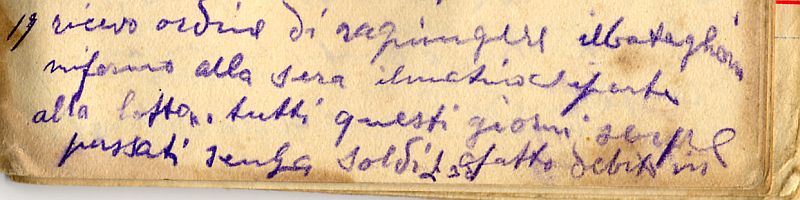 19 ricevo ordine di ragiungere ilbataglion
alla sera ilmatino siparte
alla lotta, tutti questi giorni sempre
passati senza soldi fatto debiti in